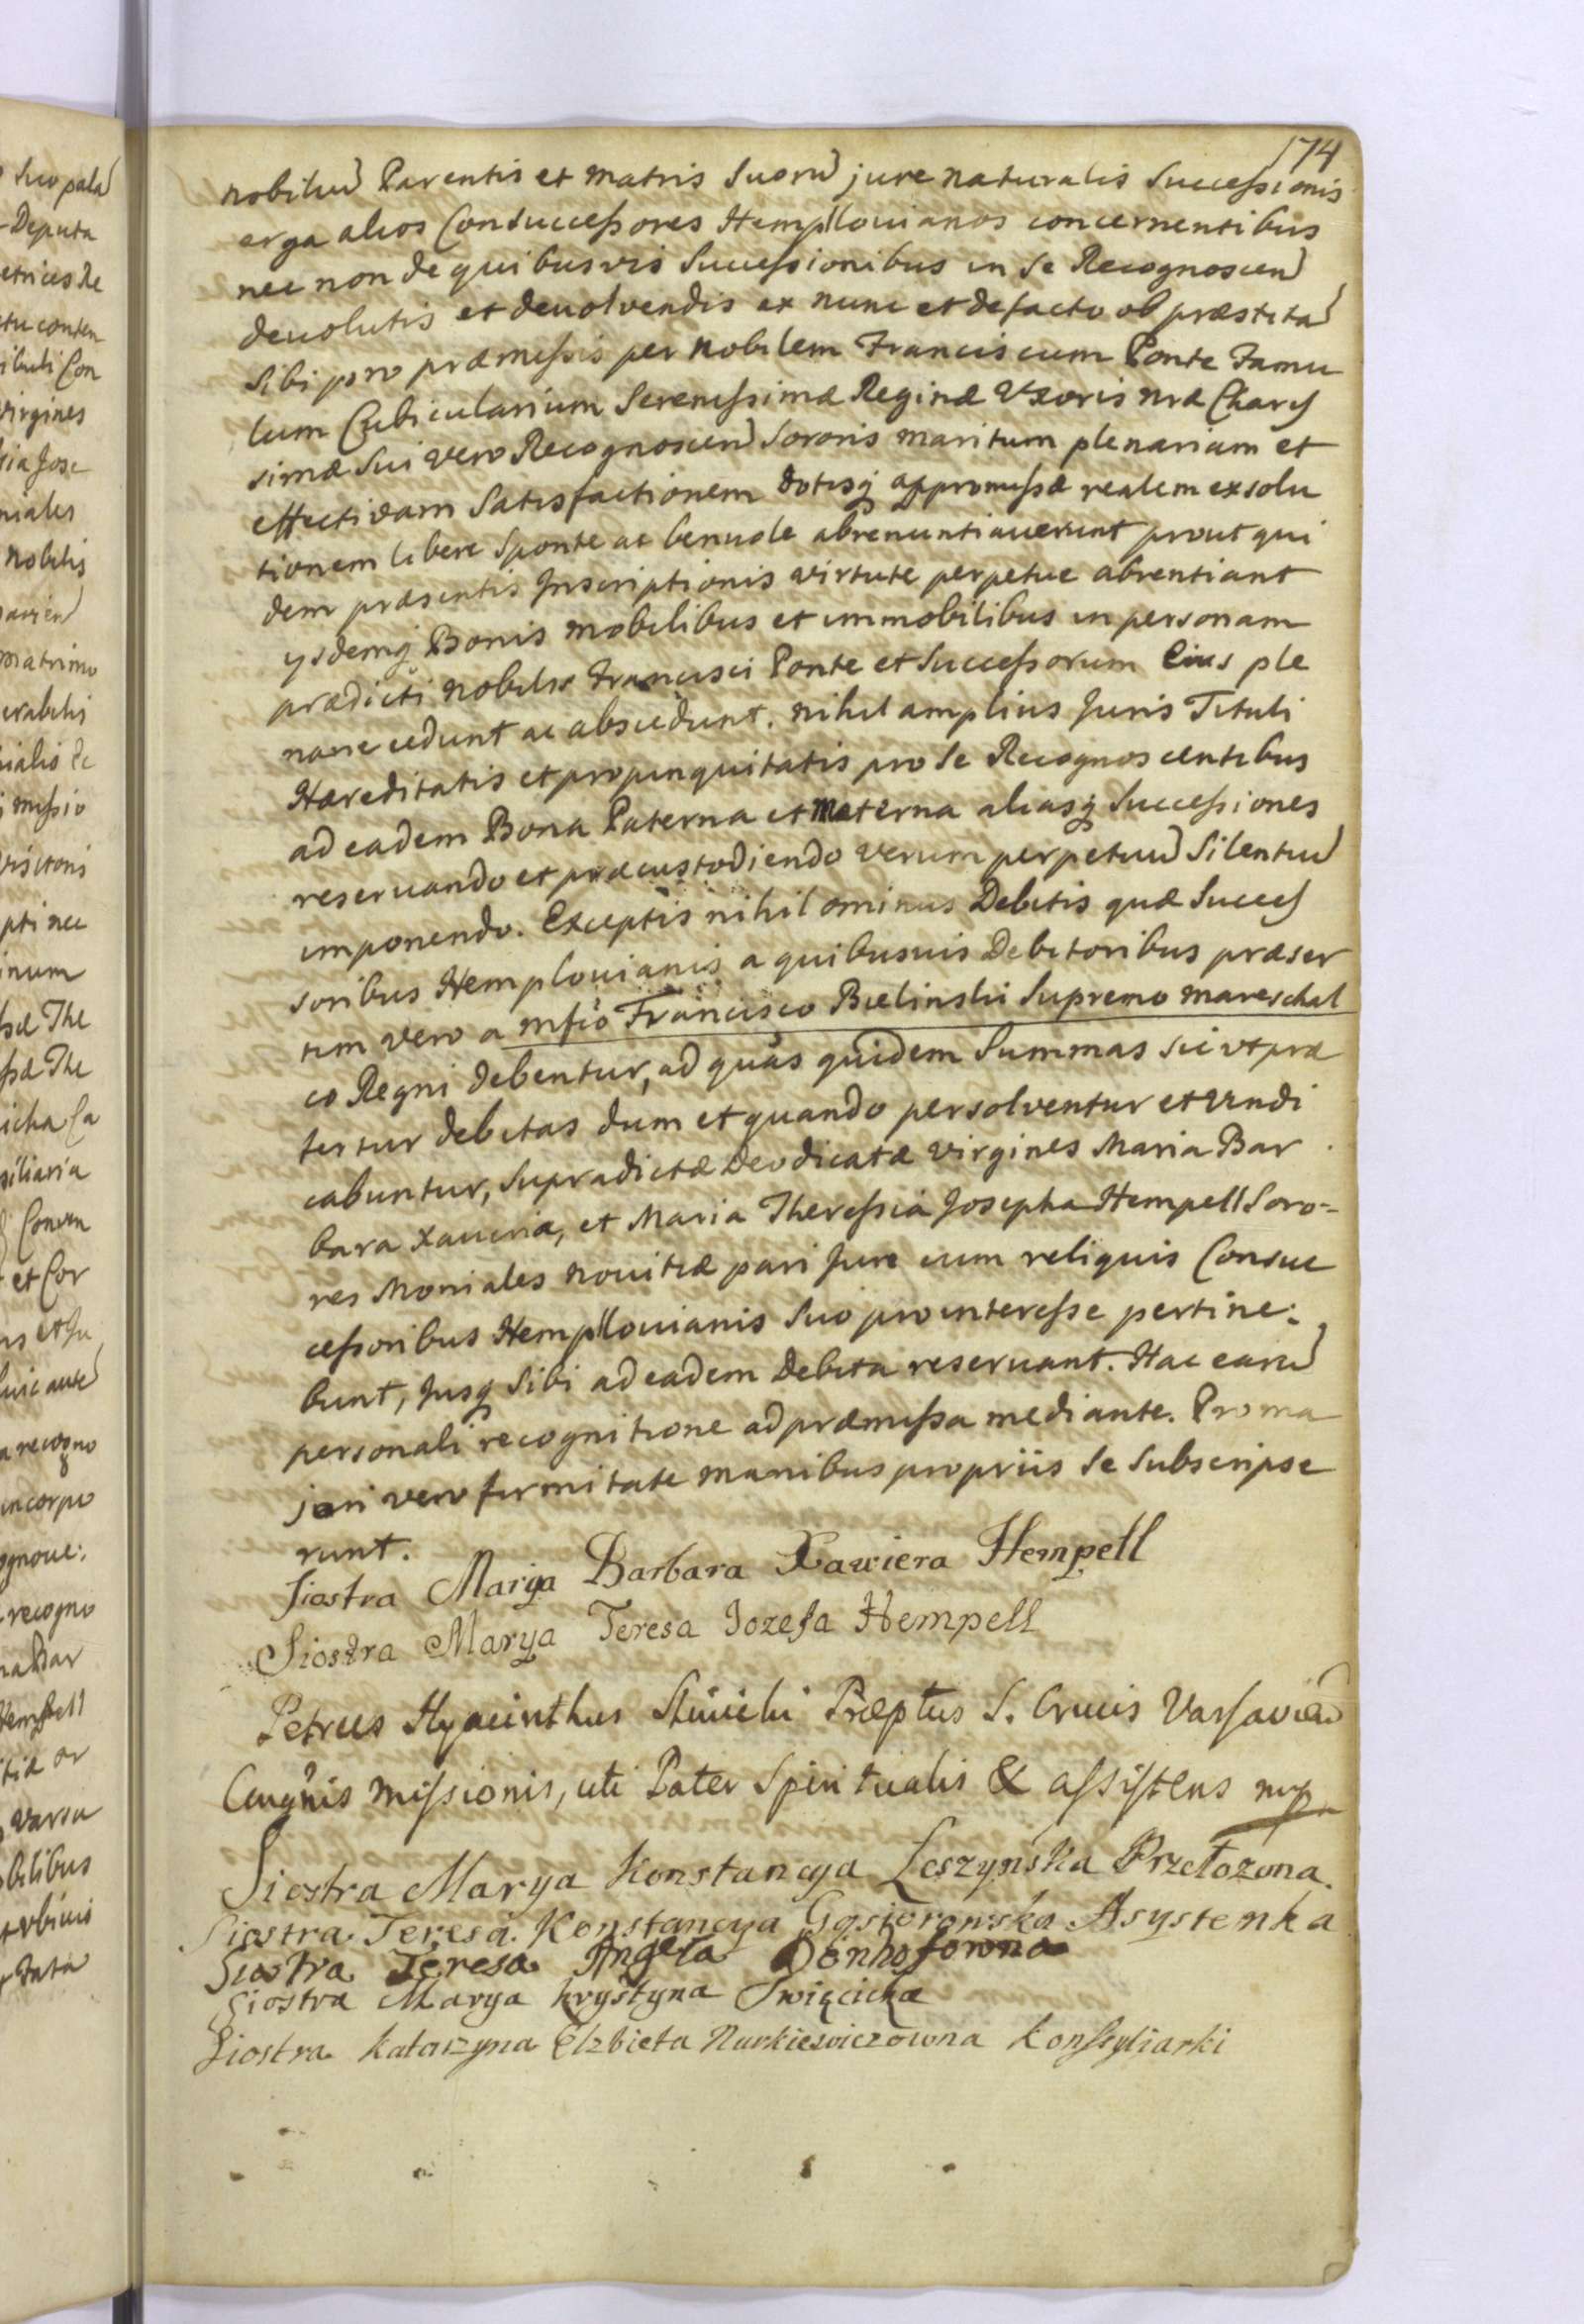 174
nobiliu Parentis et matris Suoru jure naturalis Successionis
erga alios Consuccessores Hempllovianos concernentibus
nec non de quibusvis Successionibus in Se Recognoscen
devolutis et devolvendis ex nunc et de facto ob præstita
Sibi pro præmissis per Nobilem Franciscum Ponte Famu
lum Cubicularium Serenissimæ Reginæ Uxoris nræ Chariss
simæ Sui vero Recognoscen Sororis maritum plenariam et
effectivam Satisfactionem dotisq appromissæ realem exsolu
tionem libere Sponte ac benvole abrenuntiaverunt prout qui
dem præsentis Inscriptionis virtute perpetue abrentiant
ysdemq Bonis mobilibus et immobilibus in personam
prædicti nobilis Francisci Ponte et Successorum Eius ple
narie cedunt ac abscedunt. nihil amplius Juris Tituli
Hæreditatis et propinquitatis pro Se Recognoscentibus
ad eadem Bona Paterna et Materna aliasq Successiones
reservando et præcustodiendo verum perpetuu Silentiu
imponendo. Exceptis nihilominus Debitis quæ Succes
soribus Hemplovianis a quibusvis Debitoribus præser
tim vero a Mfco Francisco Bielinski Supremo Mareschal
co Regni debentur, ad quas quidem Summas sic ut præ
fertur debitas dum et quando persolventur et vindi
cabuntur, Supradictæ Deodicatæ Virgines Maria Bar
bara Xaveria, et Maria Theressia Josepha Hempell Soro=
res Moniales novitiæ pari Jure cum reliquis Consuc
cessoribus Hempllovianis Suo pro interesse pertine:
bunt, Jusq Sibi ad eadem Debita reservant. Hac earu
personali recognitione ad præmissa mediante. Pro ma
jori vero firmitate manibus propriis Se Subscripse
runt.
Siostra Marya Barbara Xawiera Hempell
Siostra Marya Teresa Jozefa Hempell
Petrus Hyacinthus Præptus S. Crucis Varsavien
Congñis Missionis, uti Pater Spiritualis & assistens mp
Siostra Marya Konstancya Leszynska Przełożona.
Siostra Teresa Konstancya Gąsiorowska Asystenka
Siostra Teresa Angela Dönhofowna
Siostra Marya Krystyna Swięcicka
Siostra Katarzyna Elzbieta Narkiewiczowna Konsyliarki